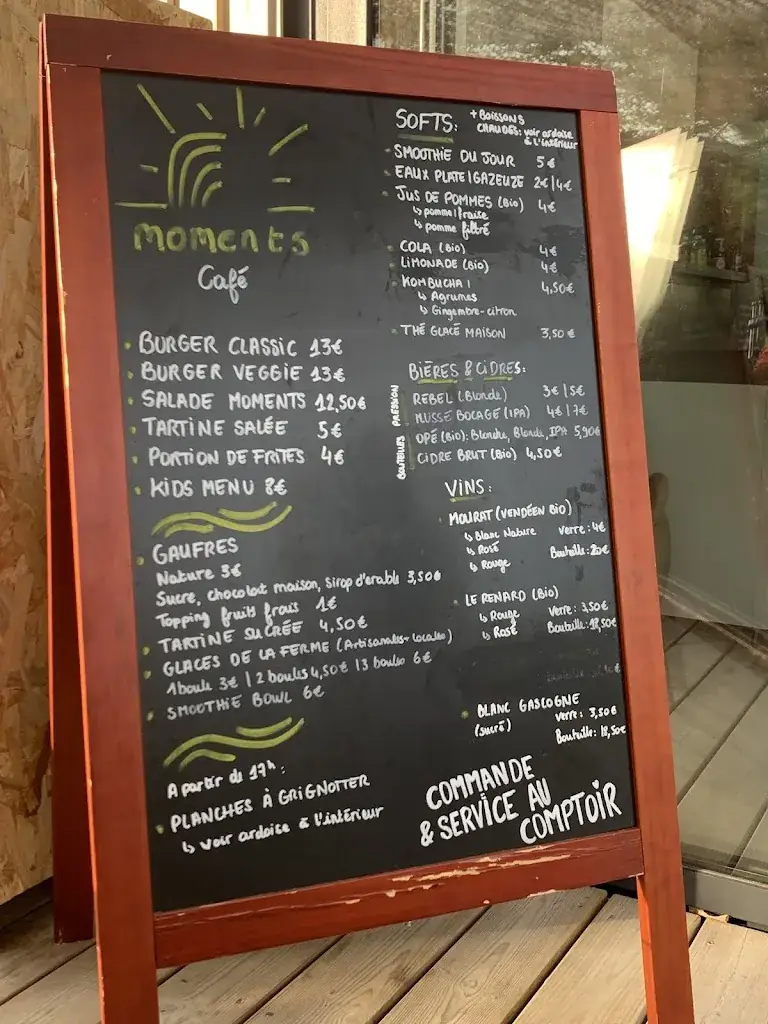 moments
Café
BURGER CLASSIC 13€
BURGER VEGGIE 13€
SALADE MOMENTS 12,50€
TARTINE SALÉE 5€
PORTION DE FRITES 4€
KIDS MENU 8€
GAUFRES
Nature 3€
Sucre, chocolat maison, sirop d'erable 3,50€
Topping fruits frais 1€
TARTINE SUCRÉE 4,50€
GLACES DE LA FERME (Artisanales + locales)
1 boule 3€ | 2 boules 4,50€ | 3 boules 6€
SMOOTHIE BOWL 6€
A partir de 17h:
PLANCHES À GRIGNOTTER
↳ voir ardoise à l'intérieur
SOFTS: + BOISSONS
CHAUDES: voir ardoise
à l'intérieur
SMOOTHIE DU JOUR 5€
EAUX PLATE | GAZEUZE 2€ | 4€
JUS DE POMMES (Bio) 4€
↳ pomme | fraise
↳ pomme filtré
COLA (Bio) 4€
LIMONADE (Bio) 4€
KOMBUCHA | 4,50€
↳ Agrumes
↳ Gingembre-citron
THÉ GLACÉ MAISON 3,50€
BIÈRES & CIDRES:
PRESSION
REBEL (Blonde) 3€ | 5€
MUSSE BOCAGE (IPA) 4€ | 7€
BOUTEILLES
OPÉ (Bio): Blanche, Blonde, IPA 5,90€
CIDRE BRUT (Bio) 4,50€
VINS:
MOURAT (VENDÉEN BIO)
↳ Blanc Nature Verre: 4€
↳ Rosé Bouteille: 20€
↳ Rouge
LE RENARD (Bio)
↳ Rouge Verre: 3,50€
↳ Rosé Bouteille: 18,50€
BLANC GASCOGNE
(sucré) verre: 3,50€
Bouteille: 18,50€
COMMANDE
& SERVICE AU
COMPTOIR